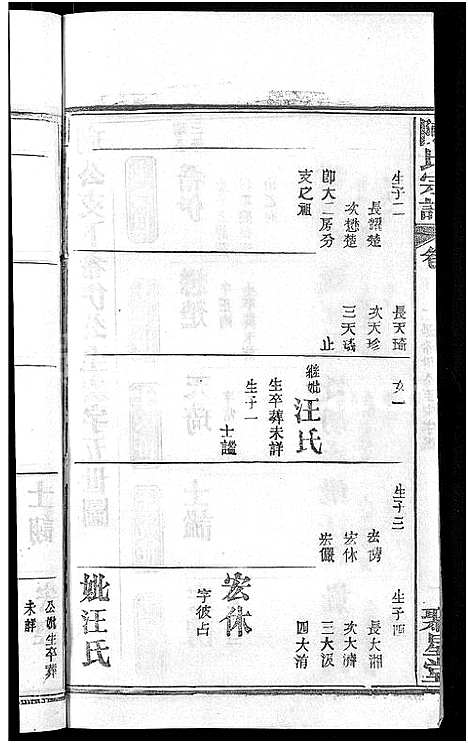 陳氏宗譜
卷
聚星堂
生子二
長諧楚
次懋楚
卽大二房分
支之祖
長天琦
次天珍
三天璚
止
女一
繼妣
汪氏
生卒葬未詳
生子一
士謐
生子三
宏休
宏儼
生子四
長大湖
次大濟
三大汲
四大消
宏休
字彼占
妣汪氏
公妣生卒葬
未詳